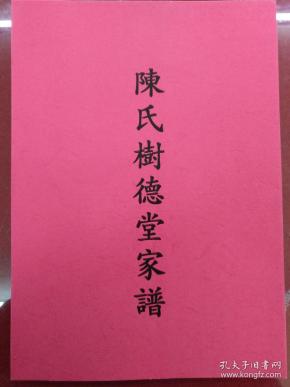 陳氏樹德堂家譜
孔夫子旧书网
www.kongfz.com